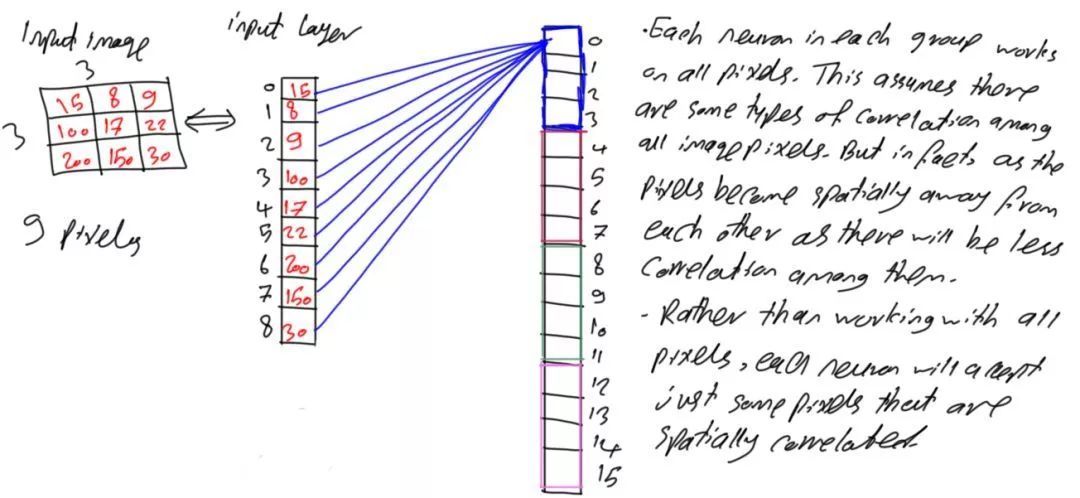 Input image
3
3
15 8 9
100 17 22
200 150 30
9 pixels
input Layer
0 15
1 8
2 9
3 100
4 17
5 22
6 200
7 150
8 30
0
1
2
3
4
5
6
7
8
9
10
11
12
13
14
15
· Each neuron in each group works
on all pixels. This assumes there
are some types of correlation among
all image pixels. But in facts, as the
pixels become spatially away from
each other as there will be less
correlation among them.
- Rather than working with all
pixels, each neuron will accept
just some pixels that are
spatially correlated